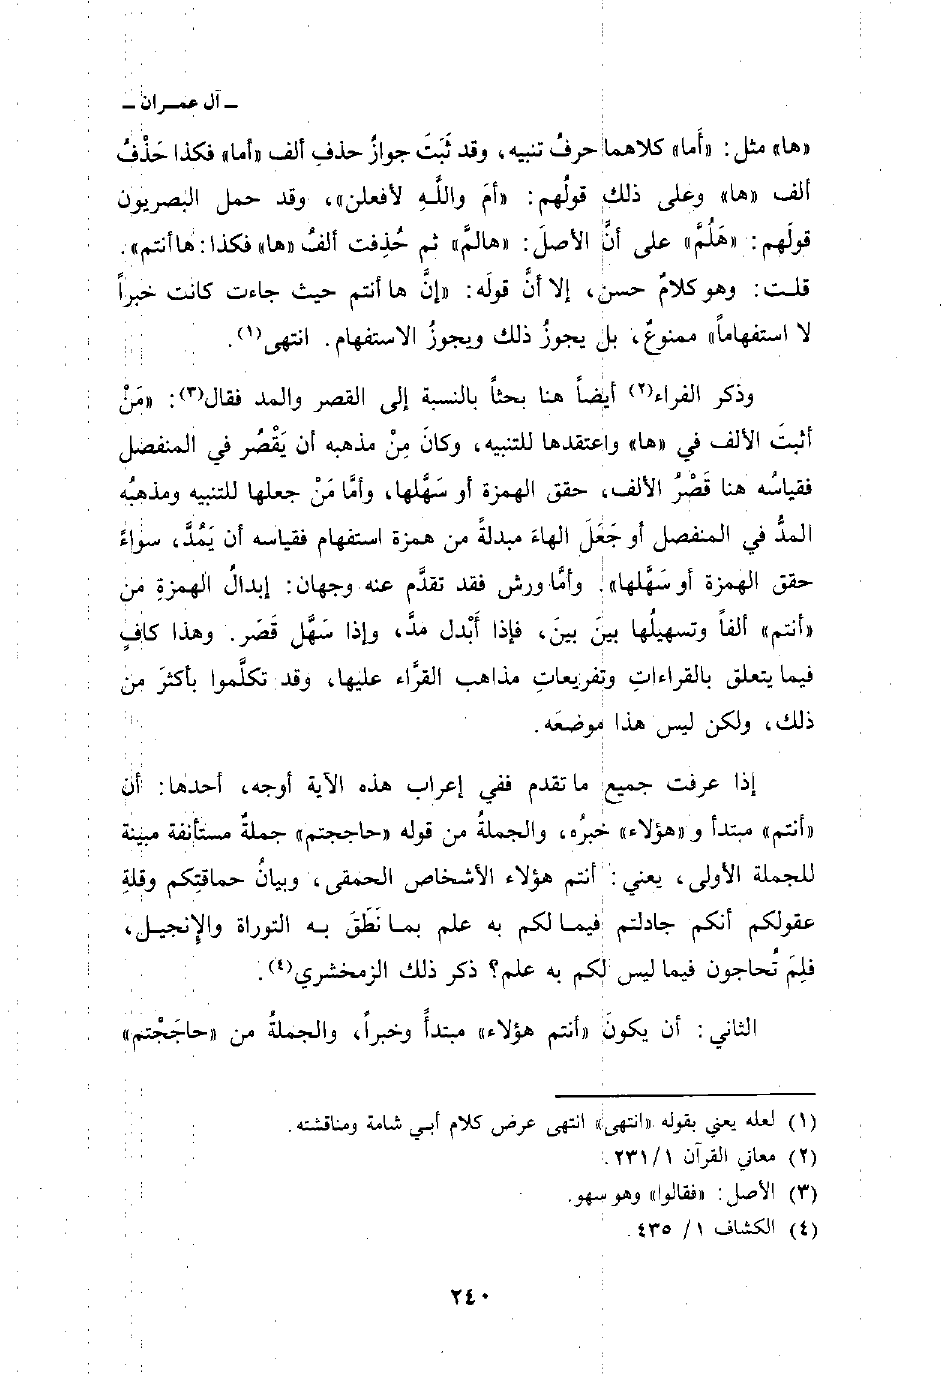 ـ آل عمـران ـ
«ها» مثل: «أَما» كلاهما حرفُ تنبيه، وقد ثَبَتَ جوازُ حذفِ ألف «أما» فكذا حَذْفُ
ألف «ها» وعلى ذلك قولُهم: «أمَ واللَّهِ لأفعلن»، وقد حمل البصريون
قولَهم: «هَلُمَّ» على أنَّ الأصلَ: «هالمَّ» ثم حُذِفت ألفُ «ها» فكذا: ها أنتم».
قلت: وهو كلامٌ حسن، إلا أنَّ قولَه: «إنَّ ها أنتم حيث جاءت كانت خبراً
لا استفهاماً» ممنوعٌ، بل يجوزُ ذلك ويجوزُ الاستفهام. انتهى(١).
وذكر الفراء(٢) أيضاً هنا بحثاً بالنسبة إلى القصر والمد فقال(٣): «مَنْ
أثبتَ الألف في «ها» واعتقدها للتنبيه، وكانَ مِنْ مذهبه أن يَقْصُر في المنفصل
فقياسُه هنا قَصْرُ الألف، حقق الهمزة أو سَهَّلها، وأمَّا مَنْ جعلها للتنبيه ومذهبُه
المدُّ في المنفصل أو جَعَلَ الهاءَ مبدلةً من همزة استفهام فقياسه أن يَمُدَّ، سواءً
حقق الهمزة أو سَهَّلها». وأمَّا ورش فقد تقدَّم عنه وجهان: إبدالُ الهمزةِ من
«أنتم» ألفاً وتسهيلُها بينَ بينَ، فإذا أَبْدل مدَّ، وإذا سَهَّل قَصَر. وهذا كافٍ
فيما يتعلق بالقراءاتِ وتفريعاتِ مذاهب القرَّاء عليها، وقد تكلَّموا بأكثرَ من
ذلك، ولكن ليس هذا موضعَه.
إذا عرفت جميع ما تقدم ففي إعراب هذه الآية أوجه، أحدها: أن
«أنتم» مبتدأ و «هؤلاء» خبرُه، والجملةُ من قوله «حاججتم» جملةٌ مستأنفة مبينة
للجملة الأولى، يعني: أنتم هؤلاء الأشخاص الحمقى، وبيانُ حماقتِكم وقلةِ
عقولكم أنكم جادلتم فيما لكم به علم بمـا نَطَقَ بـه التوراة والإنجيـل،
فلِمَ تُحاجون فيما ليس لكم به علم؟ ذكر ذلك الزمخشري(٤).
الثاني: أن يكونَ «أنتم هؤلاء» مبتدأً وخبراً، والجملةُ من «حاجَجْتم»
(١) لعله يعني بقوله «انتهى» انتهى عرض كلام أبـي شامة ومناقشته.
(٢) معاني القرآن ١/٢٣١.
(٣) الأصل: «فقالوا» وهو سهو.
(٤) الكشاف ١/ ٤٣٥.
٢٤٠